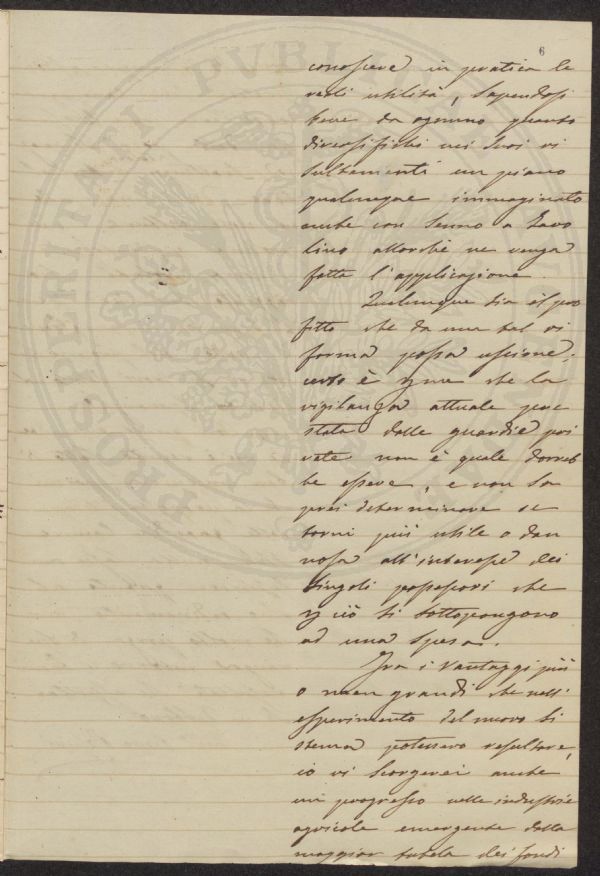 6
conoscere in pratica le
reali utilità, sapendosi
bene da ognuno quanto
diversifichi nei suoi ri
sultamenti un piano
qualunque immaginato
anche con senno a Tavo
lino allorchè ne venga
fatta l'applicazione.
Qualunque sia il pro
fitto che da una tal ri
forma possa uscirne,
certo è che la
vigilanza attuale pre
stata dalle guardie pri
vate non è quale dovreb
be essere, e non sa
prei determinare se
torni più utile o dan
nosa all'interesse dei
singoli possessori che
ciò si sottopongono
ad una spesa.
Fra i vantaggi più
o men grandi che nell'
esperimento del nuovo si
stema potessero resultare,
io vi scorgerei anche
un progresso nelle industrie
agricole emergente dalla
maggior tutela dei fondi
PROSPERITATI PVBLICAE